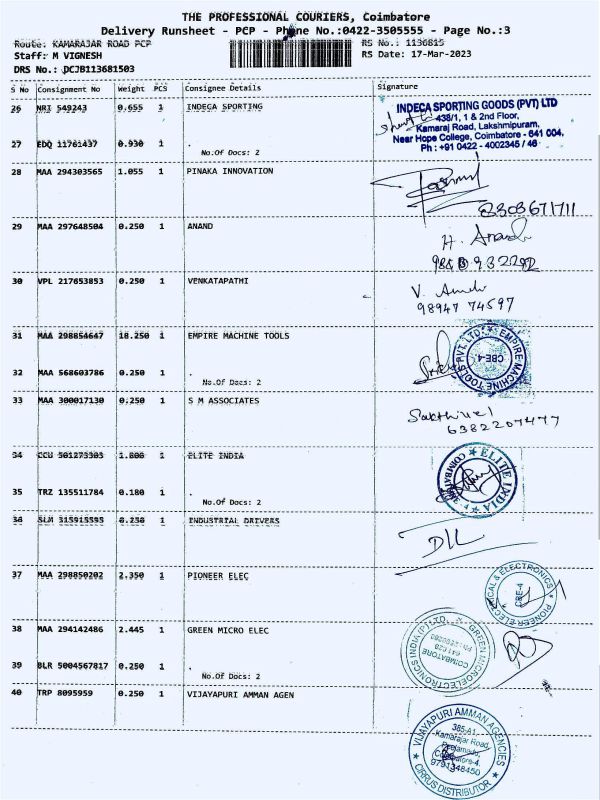 THE PROFESSIONAL COURIERS, Coimbatore
Delivery Runsheet - PCP - Phone No.:0422-3505555 - Page No.:3
Route: KAMARAJAR ROAD PCP
RS No.: 1136815
Staff: M VIGNESH
RS Date: 17-Mar-2023
DRS No.: DCJB113681503
S No Consignment No Weight PCS Consignee Details Signature
26 NRI 549243 0.655 1 INDEGA SPORTING
INDEGA SPORTING GOODS (PVT) LTD
438/1, 1 & 2nd Floor,
Kamaraj Road, Lakshmipuram,
Near Hope College, Coimbatore - 641 004,
Ph : +91 0422 - 4002345 / 46
27 EDQ 11761437 0.930 1 .
No.Of Docs: 2
28 MAA 294303565 1.055 1 PINAKA INNOVATION
8303671711
29 MAA 297648504 0.250 1 ANAND
H. Anand
30 VPL 217653853 0.250 1 VENKATAPATHI
V.
98947 74597
31 MAA 298854647 18.250 1 EMPIRE MACHINE TOOLS
EMPIRE MACHINE TOOLS PVT. LTD.
CBE-4
32 MAA 568603786 0.250 1 .
No.Of Docs: 2
33 MAA 300017130 0.250 1 S M ASSOCIATES
Sakthivel
6382207477
34 CCU 501273303 1.800 1 ELITE INDIA
ELITE INDIA
COIMBATORE - 4
35 TRZ 135511784 0.180 1 .
No.Of Docs: 2
36 SLM 315915595 0.250 1 INDUSTRIAL DRIVERS
37 MAA 298850202 2.350 1 PIONEER ELEC
PIONEER ELECTRICAL & ELECTRONICS
CBE-4
38 MAA 294142486 2.445 1 GREEN MICRO ELEC
GREEN MICROELECTRONICS INDIA (P) LTD.
COIMBATORE
39 BLR 5004567817 0.250 1 .
No.Of Docs: 2
40 TRP 8095959 0.250 1 VIJAYAPURI AMMAN AGEN
VIJAYAPURI AMMAN AGENCIES
385-A1,
Kamarajar Road,
Peelamedu,
Coimbatore-4.
9791348450
CIRRUS DISTRIBUTOR